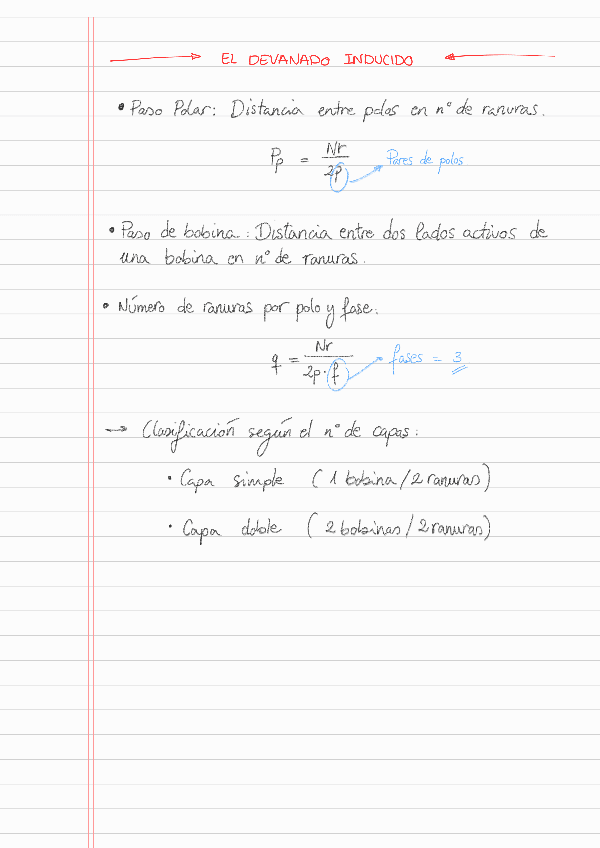 EL DEVANADO INDUCIDO
• Paso Polar: Distancia entre polos en nº de ranuras.
Pp = Nr / 2p → Pares de polos
• Paso de bobina: Distancia entre dos lados activos de
una bobina en nº de ranuras.
• Número de ranuras por polo y fase.
q = Nr / 2p · f → fases = 3
→ Clasificación según el nº de capas:
· Capa simple (1 bobina/2 ranuras)
· Capa doble (2 bobinas/2 ranuras)